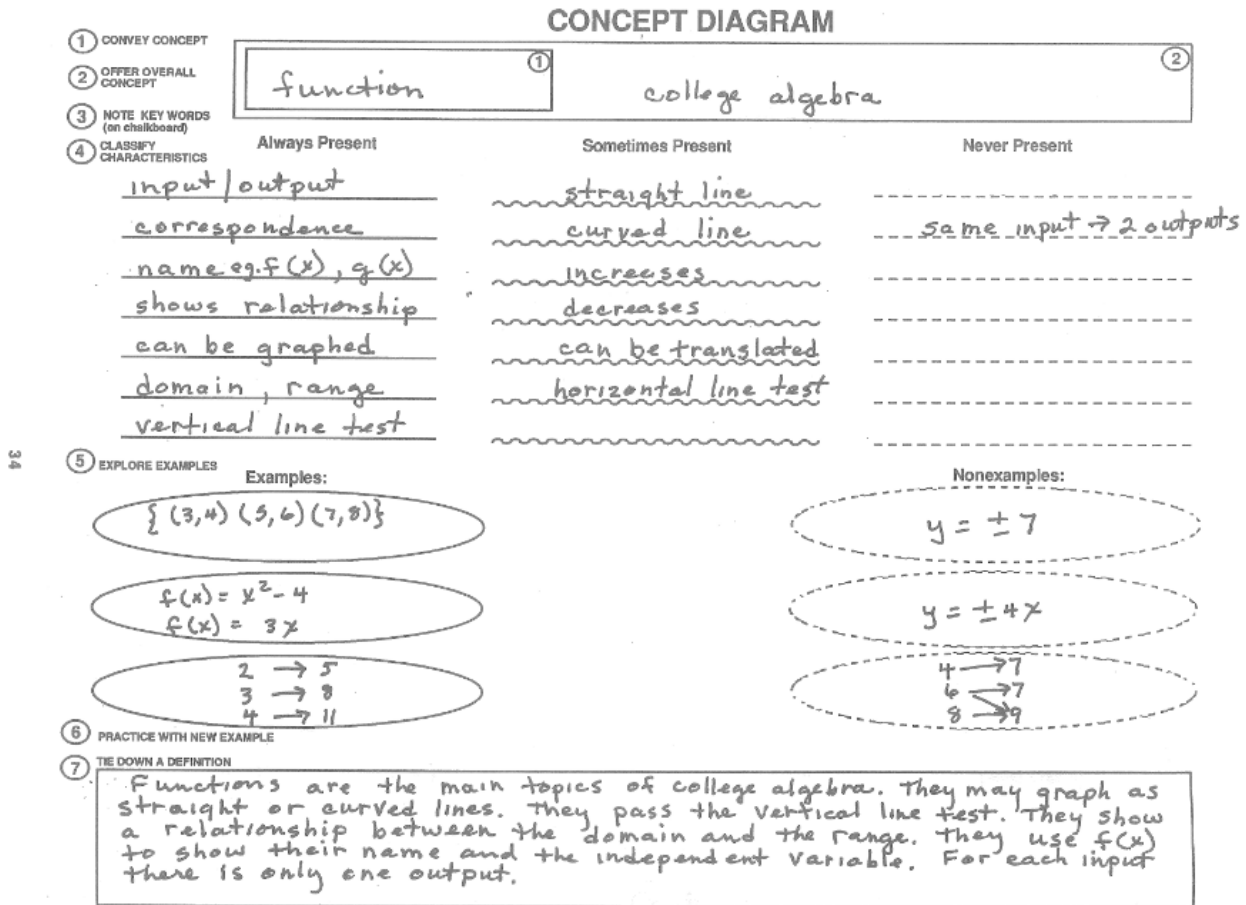 CONCEPT DIAGRAM
1 CONVEY CONCEPT
2 OFFER OVERALL CONCEPT
3 NOTE KEY WORDS (on chalkboard)
4 CLASSIFY CHARACTERISTICS
function 1
college algebra 2
Always Present
input/output
correspondence
name eg. f(x), g(x)
shows relationship
can be graphed
domain, range
vertical line test
Sometimes Present
straight line
curved line
increases
decreases
can be translated
horizontal line test
Never Present
same input → 2 outputs
34
5 EXPLORE EXAMPLES
Examples:
{ (3,4) (5,6) (7,8)}
f(x) = x² - 4
f(x) = 3x
2 → 5
3 → 8
4 → 11
Nonexamples:
y = ± 7
y = ± 4x
4 → 7
6 → 7
8 → 9
6 PRACTICE WITH NEW EXAMPLE
7 TIE DOWN A DEFINITION
Functions are the main topics of college algebra. They may graph as
straight or curved lines. They pass the vertical line test. They show
a relationship between the domain and the range. They use f(x)
to show their name and the independent variable. For each input
there is only one output.